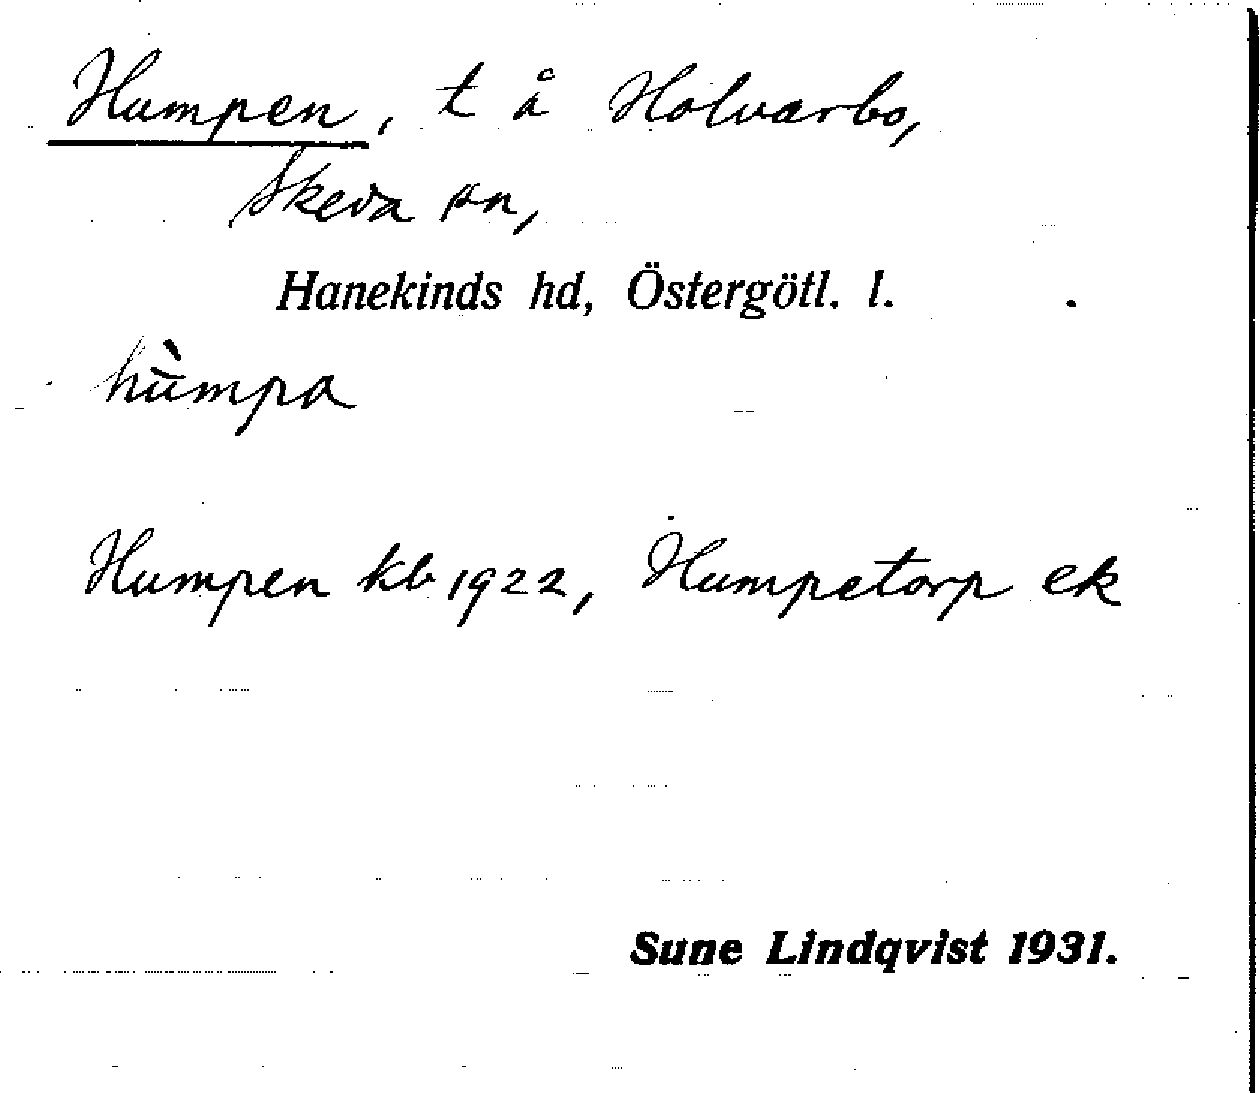 Humpen, t å Holvarbo,
Skeda sn,
Hanekinds hd, Östergötl. l.
hùmpa
Humpen kb 1922, Humpetorp ek
Sune Lindqvist 1931.